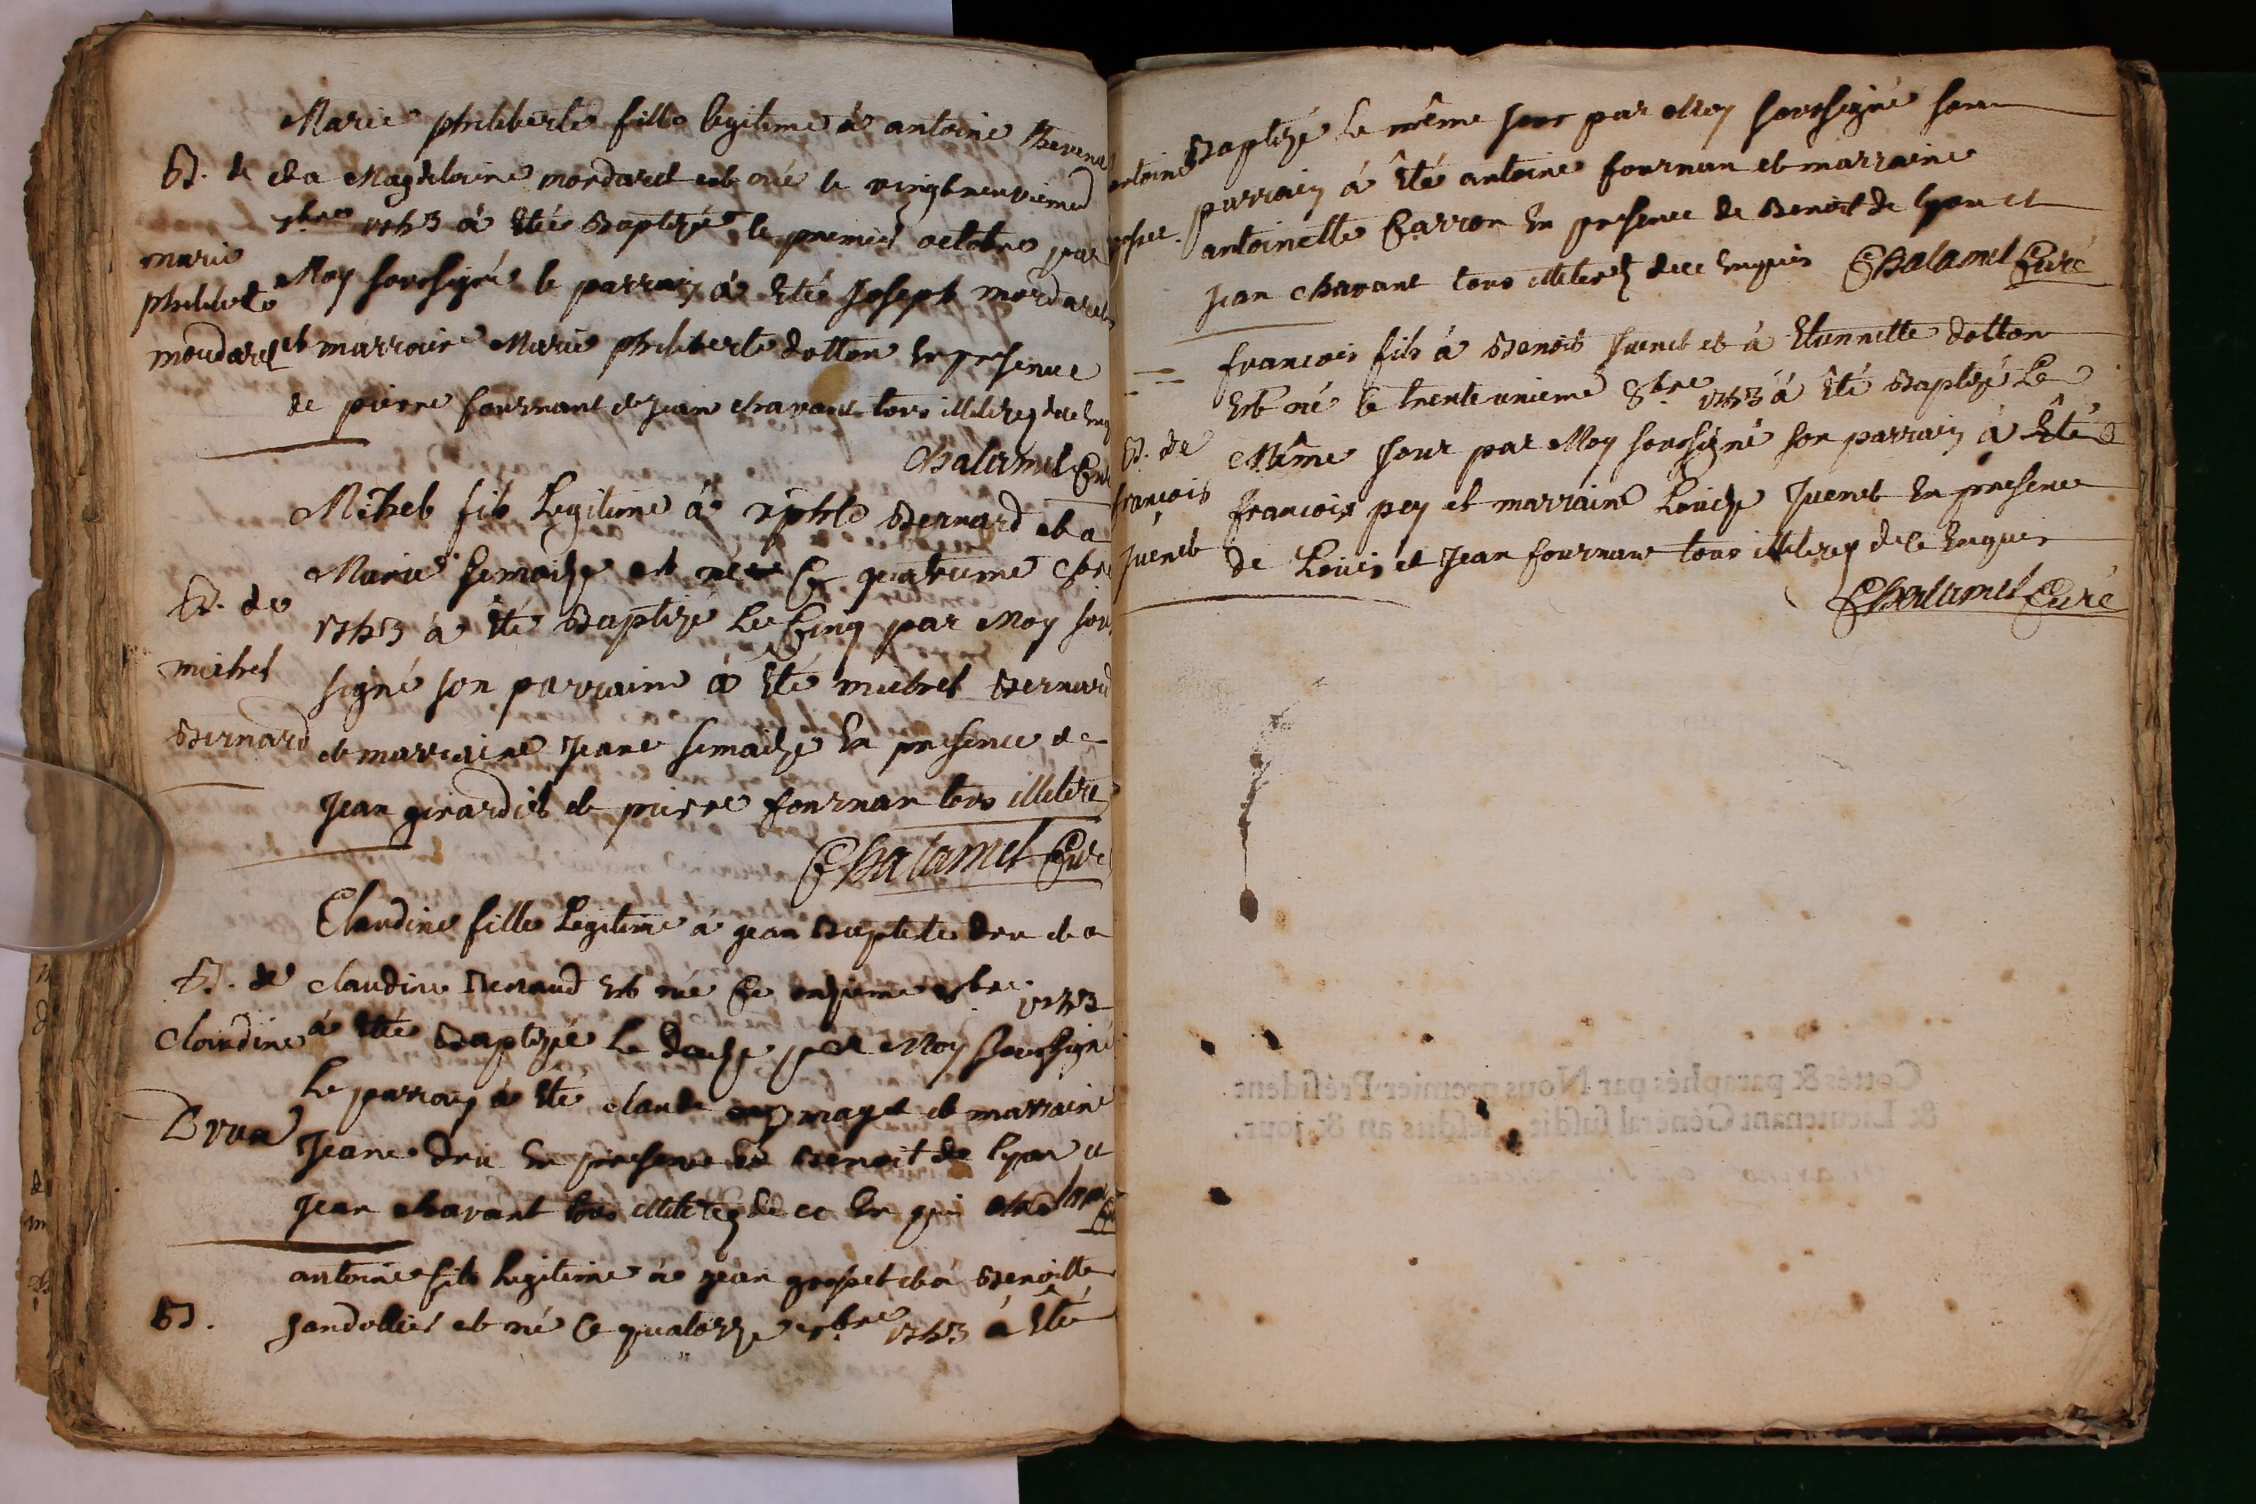 Marie philiberte fille legitime à antoine
B. de
et a Magdelaine mondaret est née le vingt neuvieme
7bre 1753 à Eteé Baptizé le premier octobre par
marie
philiberte
Moy soussigné le parrain à Eteé Joseph mordaret
mondaret
et marraine Marie philiberte dotton En presence
de pierre fournant et Jean chavant tous illiterez de ce enq
Chalamel Curé
Michel fils Legitime à Bernard et a
Marie Semaize est né Ce quatrieme 8bre
B. de
1753 à Eté Baptizé Le Cinq par Moy sous
michel
signé son parraine à Eté michel Bernard
Bernard
et marraine Jeane semaize En presence de
Jean girardit et pierre fournan tous illitere
Chalamel Curé
Claudine fille Legitime à jean Baptiste dru et a
B. de
claudine Renaud Est née Ce onzieme 8bre 1753
Claudine
à Etée Baptizée Le douze par Moy Soussigné
Le parrain à Ete claude et marraine
Drun
Jeane dru En presence de Benoit de lyon et
Jean chavant tous illiterez de ce En qui
antoine fils legitime à jean grospet et a Benoitte
B.
Jandollier et né Ce quatorze 8bre 1753 à Eté
antoine
Baptizé Le même Jour par Moy soussigné son
parrain à Eté antoine fournan et marraine
antoinette Carron En presence de Benoit de lyon et
Jean chavant tous illiterez de ce Enquis Chalamel Curé
françois fils à Benoit Juenet et à Etiennette dotton
Est né le trente unieme 8bre 1753 à Eté Baptizé Le
B. de
Même Jour par Moy soussigné son parrain à Eté
françois
françois pey et marraine Louize Juenet En presence
Juenet
de Louis et Jean fournan tous illiterez de ce Enquis
Chalamel Curé
Cottés & paraphés par Nous premier Président
& Lieutenant Général susdit, lesdits an & jour.